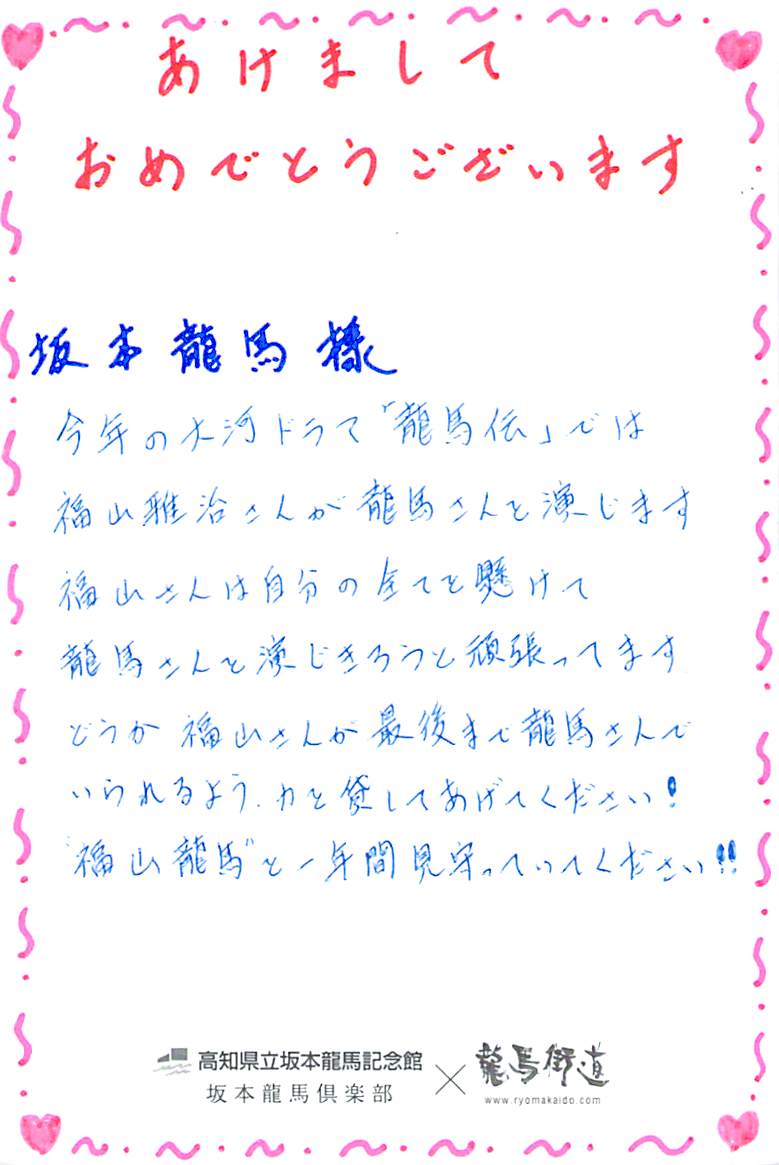 あけまして
おめでとうございます
坂本龍馬様
今年の大河ドラマ「龍馬伝」では
福山雅治さんが龍馬さんを演じます
福山さんは自分の全てを懸けて
龍馬さんを演じきろうと頑張ってます
どうか福山さんが最後まで龍馬さんで
いられるよう、力を貸してあげてください!
"福山龍馬"を一年間見守っていてください!!
高知県立坂本龍馬記念館
坂本龍馬倶楽部
×
龍馬街道
www.ryomakaido.com